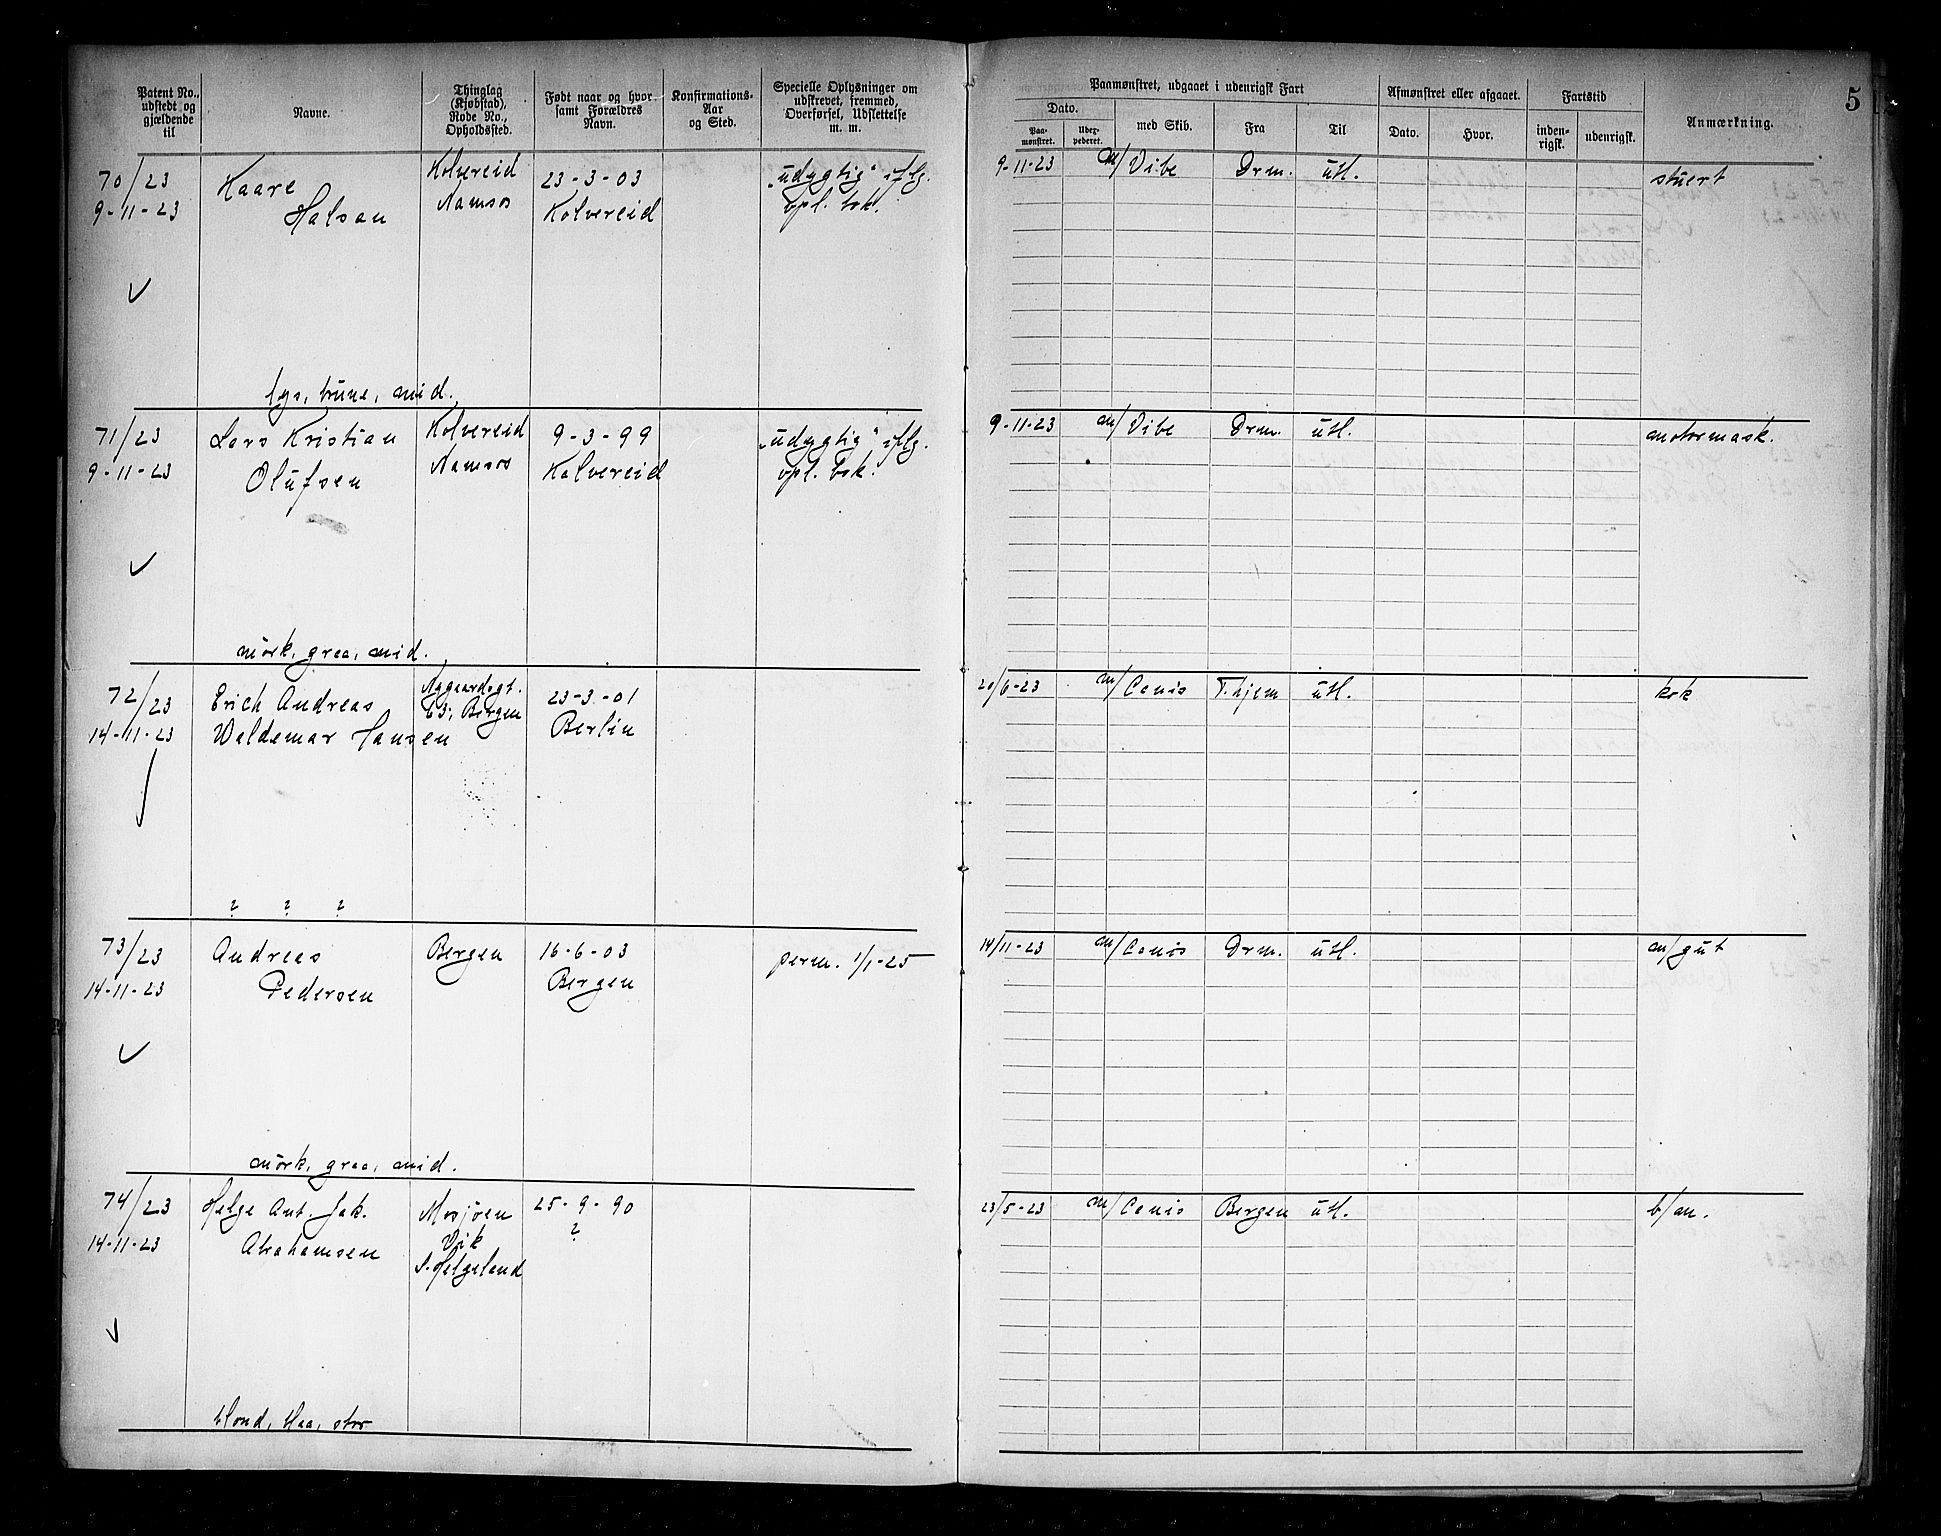 Patent No., udstedt og gjældende til
Navne.
Thinglag (Kjøbstad), Rode No., Opholdssted.
Født naar og hvor samt Forældres Navn.
Konfirmations-Aar og Sted.
Specielle Oplysninger om udskrevet, fremmed, Overførsel, Udslettelse m. m.
Paamønstret, udgaaet i udenrigsk Fart
Dato.
Paamønstret.
med Skib.
Fra
Til
Afmønstret eller afgaaet.
Dato.
Hvor.
Fartstid
inden-rigsk.
udenrigsk.
Anmærkning.
5
70/23
9-11-23
Kaare
Halsan
Kolvereid
Namsos
23-3-03
Kolvereid
"udygtig" iflg.
opl. bok.
lys, brune, mid.
9-11-23
m/Vibe
Drm.
utl.
stuert
71/23
9-11-23
Lars Kristian
Olufsen
Kolvereid
Namsos
9-3-99
Kolvereid
"udygtig" iflg.
opl. bok.
mörk, graa, mid.
9-11-23
m/Vibe
Drm.
utl.
motormask.
72/23
14-11-23
Erich Andreas
Waldemar Hansen
63, Bergen
23-3-01
Berlin
? ? ?
20/6-23
m/Canis
T.hjem
utl.
kok
73/23
14-11-23
Andreas
Pedersen
Bergen
16-6-03
Bergen
perm. 1/1-25
mörk, graa, mid.
14/11-23
m/Canis
Drm.
utl.
m/gut
74/23
14-11-23
Helge Ant. Jak.
Abrahamsen
Mosjöen
Vik
S. Helgeland
25-9-90
?
blond, blaa, stor
23/5-23
m/Canis
Bergen
utl.
b/m.